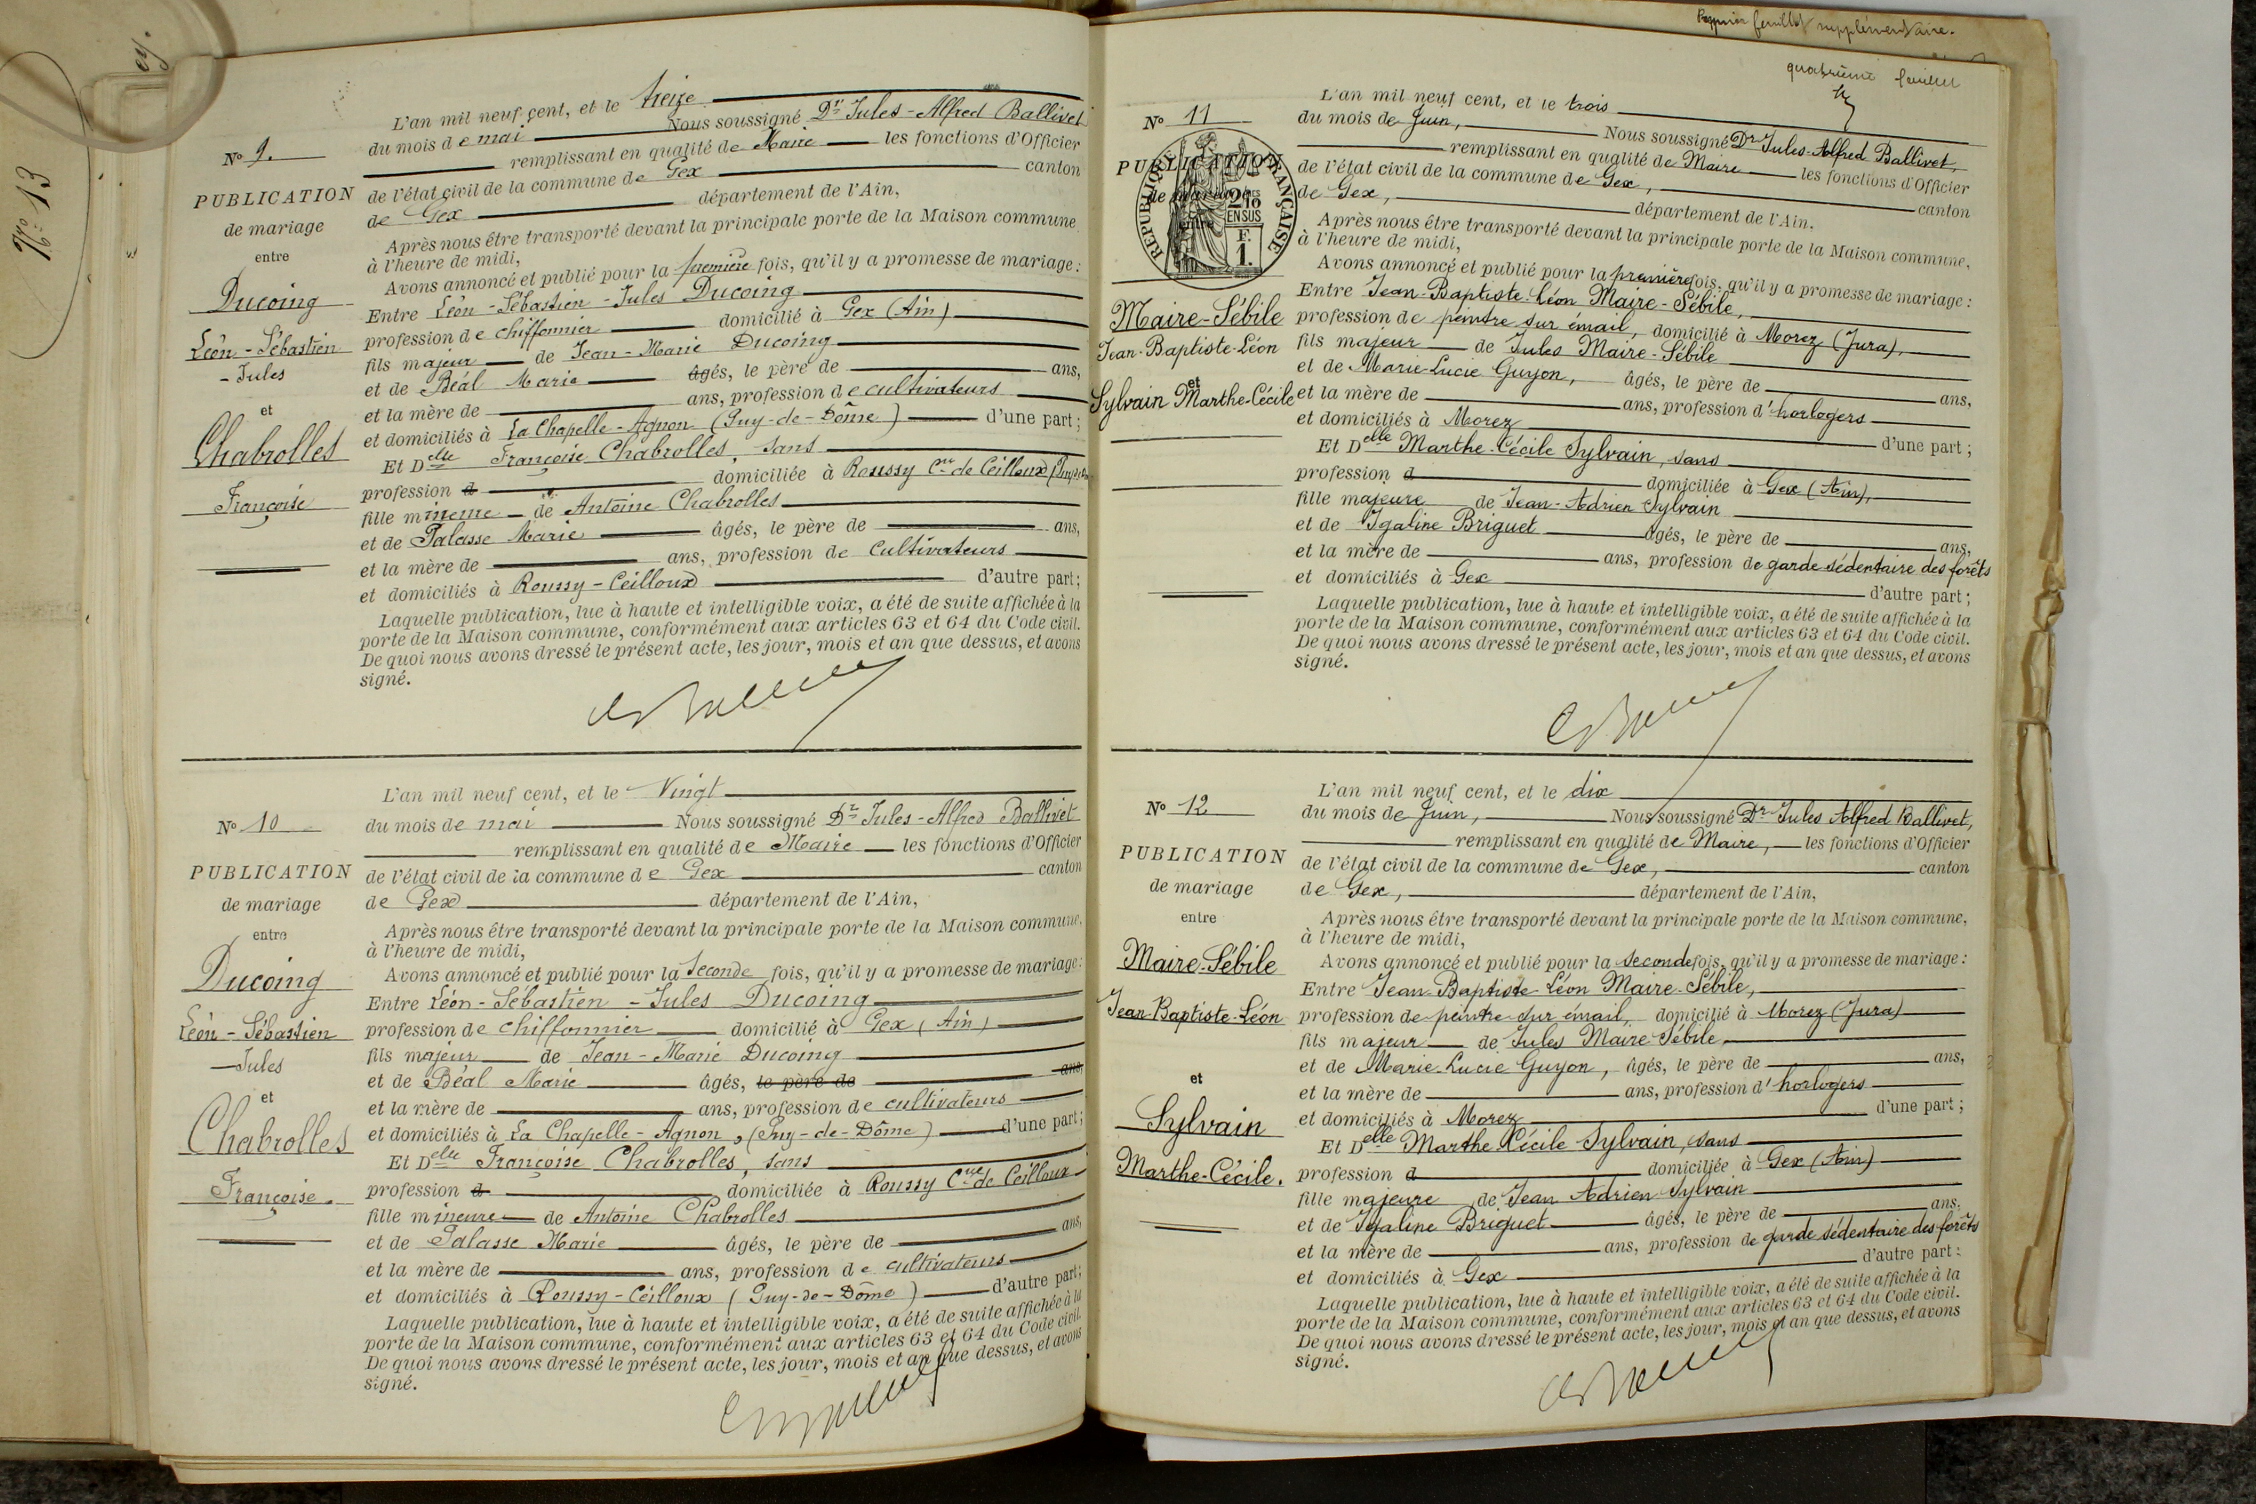 No 13
ey.
No 9.
PUBLICATION
de mariage
entre
Ducoing
Léon - Sébastien
- Jules
et
Chabrolles
Françoise
L'an mil neuf cent, et le treize
du mois de mai Nous soussigné Dr Jules-Alfred Ballivet
remplissant en qualité de Maire les fonctions d'Officier
de l'état civil de la commune de Gex canton
de Gex département de l'Ain,
Après nous être transporté devant la principale porte de la Maison commune
à l'heure de midi,
Avons annoncé et publié pour la première fois, qu'il y a promesse de mariage :
Entre Léon - Sébastien - Jules Ducoing
profession de chiffonnier domicilié à Gex (Ain)
fils majeur de Jean - Marie Ducoing
et de Béal Marie âgés, le père de ans,
et la mère de ans, profession de cultivateurs
et domiciliés à La Chapelle - Agnon (Puy-de-Dôme) d'une part ;
Et Delle Françoise Chabrolles, sans
profession d domiciliée à Roussy Cne de Ceilloux
fille mineure de Antoine Chabrolles
et de Palasse Marie âgés, le père de ans,
et la mère de ans, profession de cultivateurs
et domiciliés à Roussy - Ceilloux d'autre part ;
Laquelle publication, lue à haute et intelligible voix, a été de suite affichée à la
porte de la Maison commune, conformément aux articles 63 et 64 du Code civil.
De quoi nous avons dressé le présent acte, les jour, mois et an que dessus, et avons
signé.
No 10
PUBLICATION
de mariage
entre
Ducoing
Léon - Sébastien
- Jules
et
Chabrolles
Françoise.
L'an mil neuf cent, et le Vingt
du mois de mai Nous soussigné Dr Jules - Alfred Ballivet
remplissant en qualité de Maire les fonctions d'Officier
de l'état civil de la commune de Gex canton
de Gex département de l'Ain,
Après nous être transporté devant la principale porte de la Maison commune,
à l'heure de midi,
Avons annoncé et publié pour la Seconde fois, qu'il y a promesse de mariage :
Entre Léon - Sébastien - Jules Ducoing
profession de chiffonnier domicilié à Gex (Ain)
fils majeur de Jean - Marie Ducoing
et de Béal Marie âgés, le père de ans,
et la mère de ans, profession de cultivateurs
et domiciliés à La Chapelle - Agnon, (Puy-de-Dôme) d'une part ;
Et Delle Françoise Chabrolles, sans
profession d domiciliée à Roussy Cne de Ceilloux
fille mineure de Antoine Chabrolles
et de Palasse Marie âgés, le père de ans,
et la mère de ans, profession de cultivateurs
et domiciliés à Roussy - Ceilloux (Puy-de-Dôme) d'autre part ;
Laquelle publication, lue à haute et intelligible voix, a été de suite affichée à la
porte de la Maison commune, conformément aux articles 63 et 64 du Code civil.
De quoi nous avons dressé le présent acte, les jour, mois et an que dessus, et avons
signé.
feuillet supplémentaire.
quatrième feuillet
No 11
PUBLICATION
de mariage
entre
RÉPUBLIQUE FRANÇAISE
2/10
EN SUS
F.
1.
Maire-Sébile
Jean-Baptiste-Léon
et
Sylvain Marthe-Cécile
L'an mil neuf cent, et le trois
du mois de Juin, Nous soussigné Dr Jules-Alfred Ballivet,
remplissant en qualité de Maire les fonctions d'Officier
de l'état civil de la commune de Gex, canton
de Gex, département de l'Ain,
Après nous être transporté devant la principale porte de la Maison commune,
à l'heure de midi,
Avons annoncé et publié pour la première fois, qu'il y a promesse de mariage :
Entre Jean-Baptiste-Léon Maire-Sébile,
profession de peintre sur émail, domicilié à Morez (Jura),
fils majeur de Jules Maire-Sébile
et de Marie-Lucie Guyon, âgés, le père de ans,
et la mère de ans, profession d'horlogers
et domiciliés à Morez d'une part ;
Et Delle Marthe-Cécile Sylvain, sans
profession d domiciliée à Gex (Ain),
fille majeure de Jean-Adrien Sylvain
et de Igaline Briguet âgés, le père de ans,
et la mère de ans, profession de garde sédentaire des forêts
et domiciliés à Gex d'autre part ;
Laquelle publication, lue à haute et intelligible voix, a été de suite affichée à la
porte de la Maison commune, conformément aux articles 63 et 64 du Code civil.
De quoi nous avons dressé le présent acte, les jour, mois et an que dessus, et avons
signé.
No 12
PUBLICATION
de mariage
entre
Maire-Sébile
Jean-Baptiste-Léon
et
Sylvain
Marthe-Cécile.
L'an mil neuf cent, et le dix
du mois de Juin, Nous soussigné Dr Jules Alfred Ballivet,
remplissant en qualité de Maire, les fonctions d'Officier
de l'état civil de la commune de Gex, canton
de Gex, département de l'Ain,
Après nous être transporté devant la principale porte de la Maison commune,
à l'heure de midi,
Avons annoncé et publié pour la seconde fois, qu'il y a promesse de mariage :
Entre Jean-Baptiste Léon Maire-Sébile,
profession de peintre sur émail, domicilié à Morez (Jura)
fils majeur de Jules Maire Sébile,
et de Marie-Lucie Guyon, âgés, le père de ans,
et la mère de ans, profession d'horlogers
et domiciliés à Morez d'une part ;
Et Delle Marthe Cécile Sylvain, sans
profession d domiciliée à Gex (Ain)
fille majeure de Jean Adrien Sylvain
et de Igaline Briguet âgés, le père de ans.
et la mère de ans, profession de garde sédentaire des forêts
et domiciliés à Gex d'autre part :
Laquelle publication, lue à haute et intelligible voix, a été de suite affichée à la
porte de la Maison commune, conformément aux articles 63 et 64 du Code civil.
De quoi nous avons dressé le présent acte, les jour, mois et an que dessus, et avons
signé.